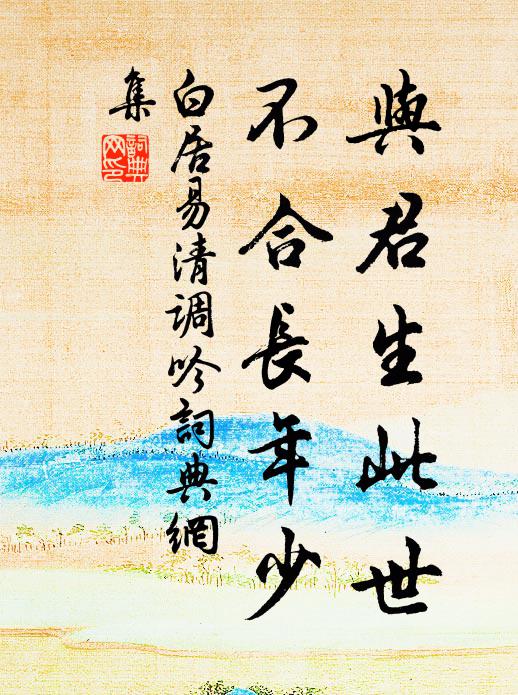 與君生此世
不合長年少
白居易清調吟詞典網
集
詞典
网印